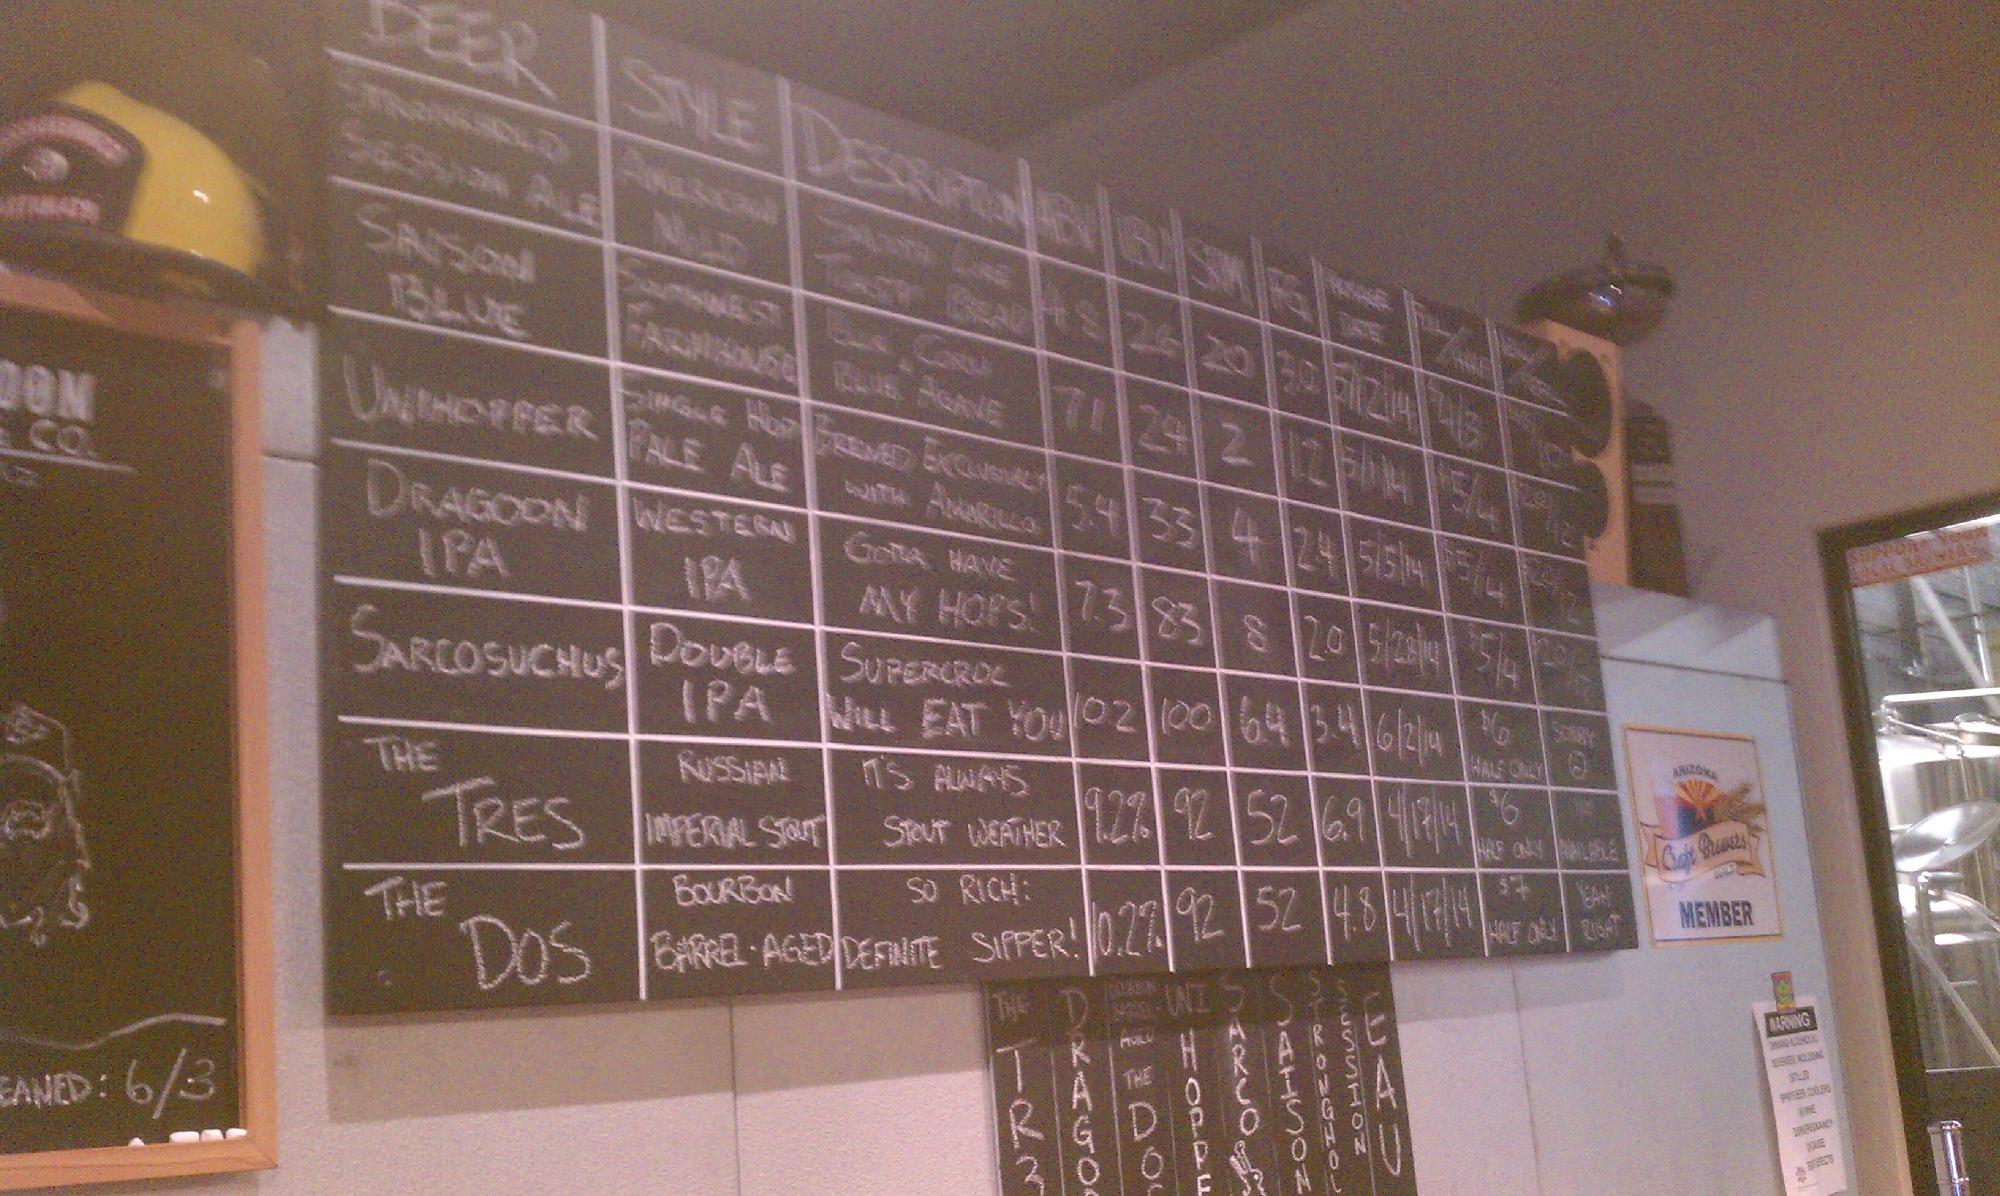 BEER STYLE DESCRIPTION ABV IBU SRM F.G. PACKAGE DATE FULL/HALF
STRONGHOLD SESSION ALE AMERICAN MILD TOASTY BREAD 4.8 26 20 3.0 5/12/14 $4/3
SAISON BLUE SOUTHWEST FARMHOUSE BLUE CORN BLUE AGAVE 7.1 24 2 1.2 5/1/14 $5/4
UNIHOPPER SINGLE HOP PALE ALE BREWED EXCLUSIVELY WITH AMARILLO 5.4 33 4 2.4 5/5/14 $5/4
DRAGOON IPA WESTERN IPA GOTTA HAVE MY HOPS! 7.3 83 8 2.0 5/28/14 $5/4
SARCOSUCHUS DOUBLE IPA SUPERCROC WILL EAT YOU 10.2 100 6.4 3.4 6/2/14 $6 HALF ONLY SORRY
THE TRES RUSSIAN IMPERIAL STOUT IT'S ALWAYS STOUT WEATHER 9.2% 92 52 6.9 4/17/14 $6 HALF ONLY AVAILABLE
THE DOS BOURBON BARREL-AGED SO RICH: DEFINITE SIPPER! 10.2% 92 52 4.8 4/17/14 $7 HALF ONLY YEAH RIGHT
THE TR3
DRAGOO
BOURBON BARREL AGED THE DO
UNI HOPPE
SARCO
SAISON
STRONGHOL
SESSION
EAU
OON
E CO.
EANED: 6/3
ARIZONA
Craft Brewers
GUILD
MEMBER
WARNING